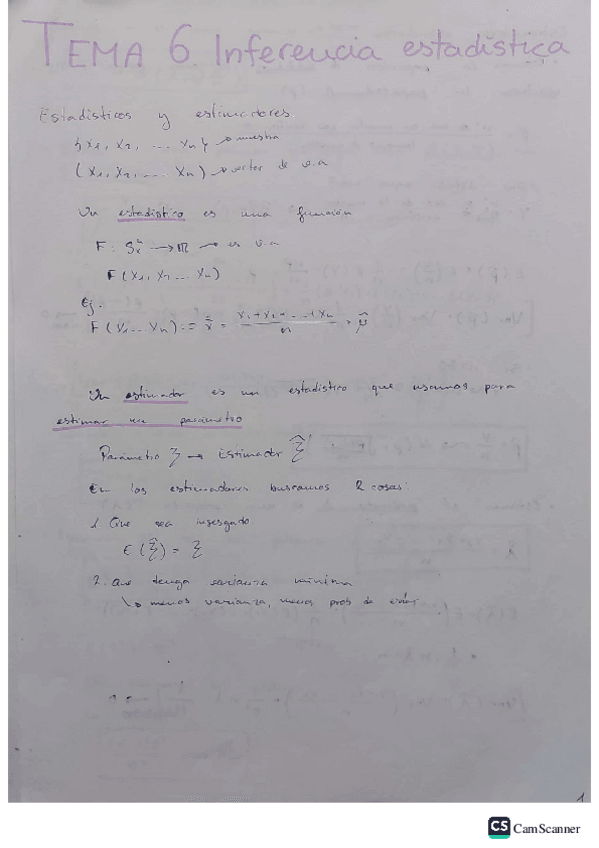 TEMA 6 Inferencia estadística
Estadísticos y estimadores.
{x₁, x₂, ... xₙ} → muestra
(x₁, x₂, ... xₙ) → vector de v.a
Un estadístico es una función
F: Sₓⁿ → ℝ → es v.a
F(x₁, x₂ ... xₙ)
Ej.
F(x₁... xₙ) = x̄ = (x₁ + x₂ + ... + xₙ)/n = μ̂
Un estimador es un estadístico que usamos para
estimar un parámetro
Parámetro ξ → Estimador ξ̂
En los estimadores buscamos 2 cosas:
1. Que sea insesgado
E(ξ̂) = ξ
2. Que tenga varianza mínima
↳ menos varianza, menos prob de error
1
CS CamScanner